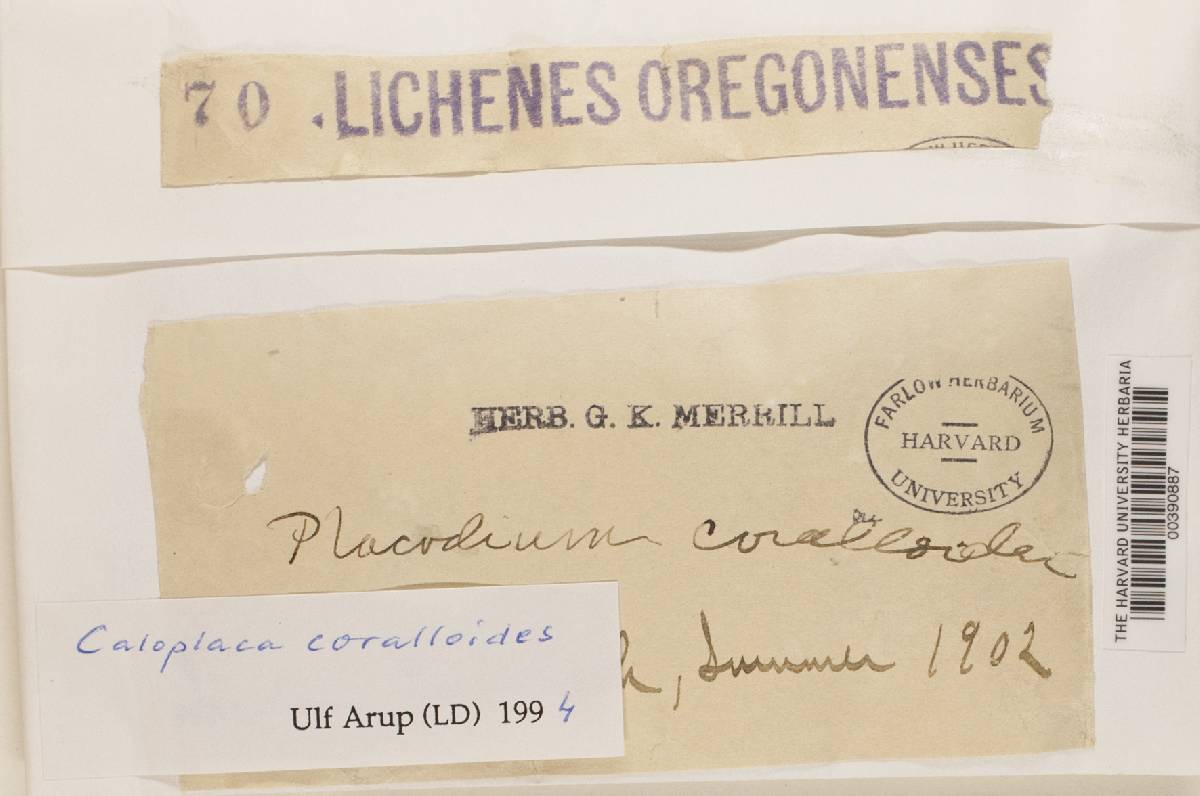 70 . LICHENES OREGONENSES
HERB. G. K. MERRILL
FARLOW HERBARIUM
HARVARD
UNIVERSITY
Placodium coralloides
h, Summer 1902
Caloplaca coralloides
Ulf Arup (LD) 1994
THE HARVARD UNIVERSITY HERBARIA
00390887